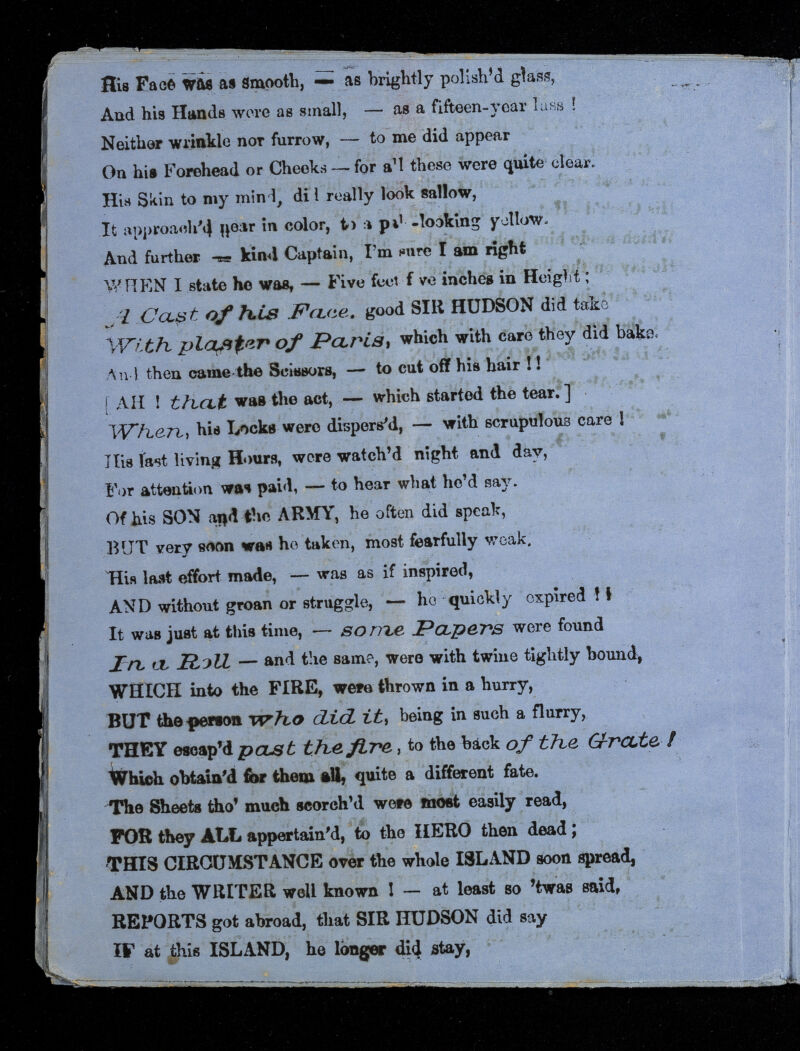 His Face was as smooth, — as brightly polish'd glass,
And his Hands were as small, — as a fifteen-year lass !
Neither wrinkle nor furrow, — to me did appear
On his Forehead or Cheeks — for a'l these were quite clear.
His Skin to my mind, did really look sallow,
It approach'd near in color, to a -looking yellow.
And further — kind Captain, I'm sure I am right
WHEN I state he was, — Five feet f ve inches in Height ;
A Cast of his Face. good SIR HUDSON did take
With plaster of Paris, which with care they did bake.
And then came the Scissors, — to cut off his hair ! !
[ AH ! that was the act, — which started the tear. ]
When, his Locks were dispers'd, — with scrupulous care !
His last living Hours, were watch'd night and day,
For attention was paid, — to hear what he'd say.
Of his SON and the ARMY, he often did speak,
BUT very soon was he taken, most fearfully weak.
His last effort made, — was as if inspired,
AND without groan or struggle, — he quickly expired ! !
It was just at this time, — some Papers were found
In a Roll — and the same, were with twine tightly bound,
WHICH into the FIRE, were thrown in a hurry,
BUT the person who did it, being in such a flurry,
THEY escap'd past the fire, to the back of the Grate !
Which obtain'd for them all, quite a different fate.
The Sheets tho' much scorch'd were most easily read,
FOR they ALL appertain'd, to the HERO then dead ;
THIS CIRCUMSTANCE over the whole ISLAND soon spread,
AND the WRITER well known ! — at least so 'twas said,
REPORTS got abroad, that SIR HUDSON did say
IF at this ISLAND, he longer did stay,